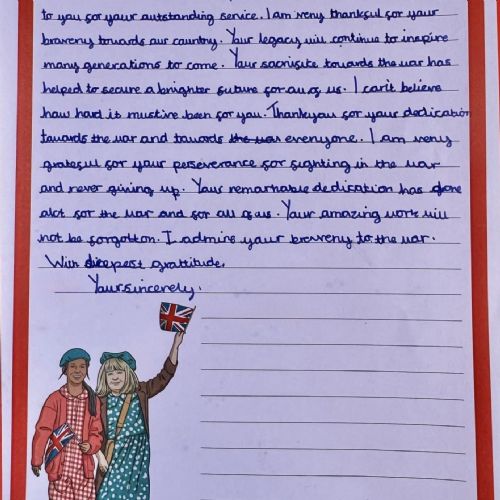 to you for your outstanding service. I am very thankful for your
bravery towards our country. Your legacy will continue to inspire
many generations to come. Your sacrisite towards the war has
helped to secure a brighter future for all of us. I can't believe
how hard it mustive been for you. Thankyou for your dedication
towards the war and tawards the war everyone. I am very
grateful for your perseverance for fighting in the war
and never giving up. Your remarkable dedication has done
alot for the war and for all of us. Your amazing work will
not be forgotton. I admire your bravery to the war.
With deepest grattitude,
Yoursincerely.